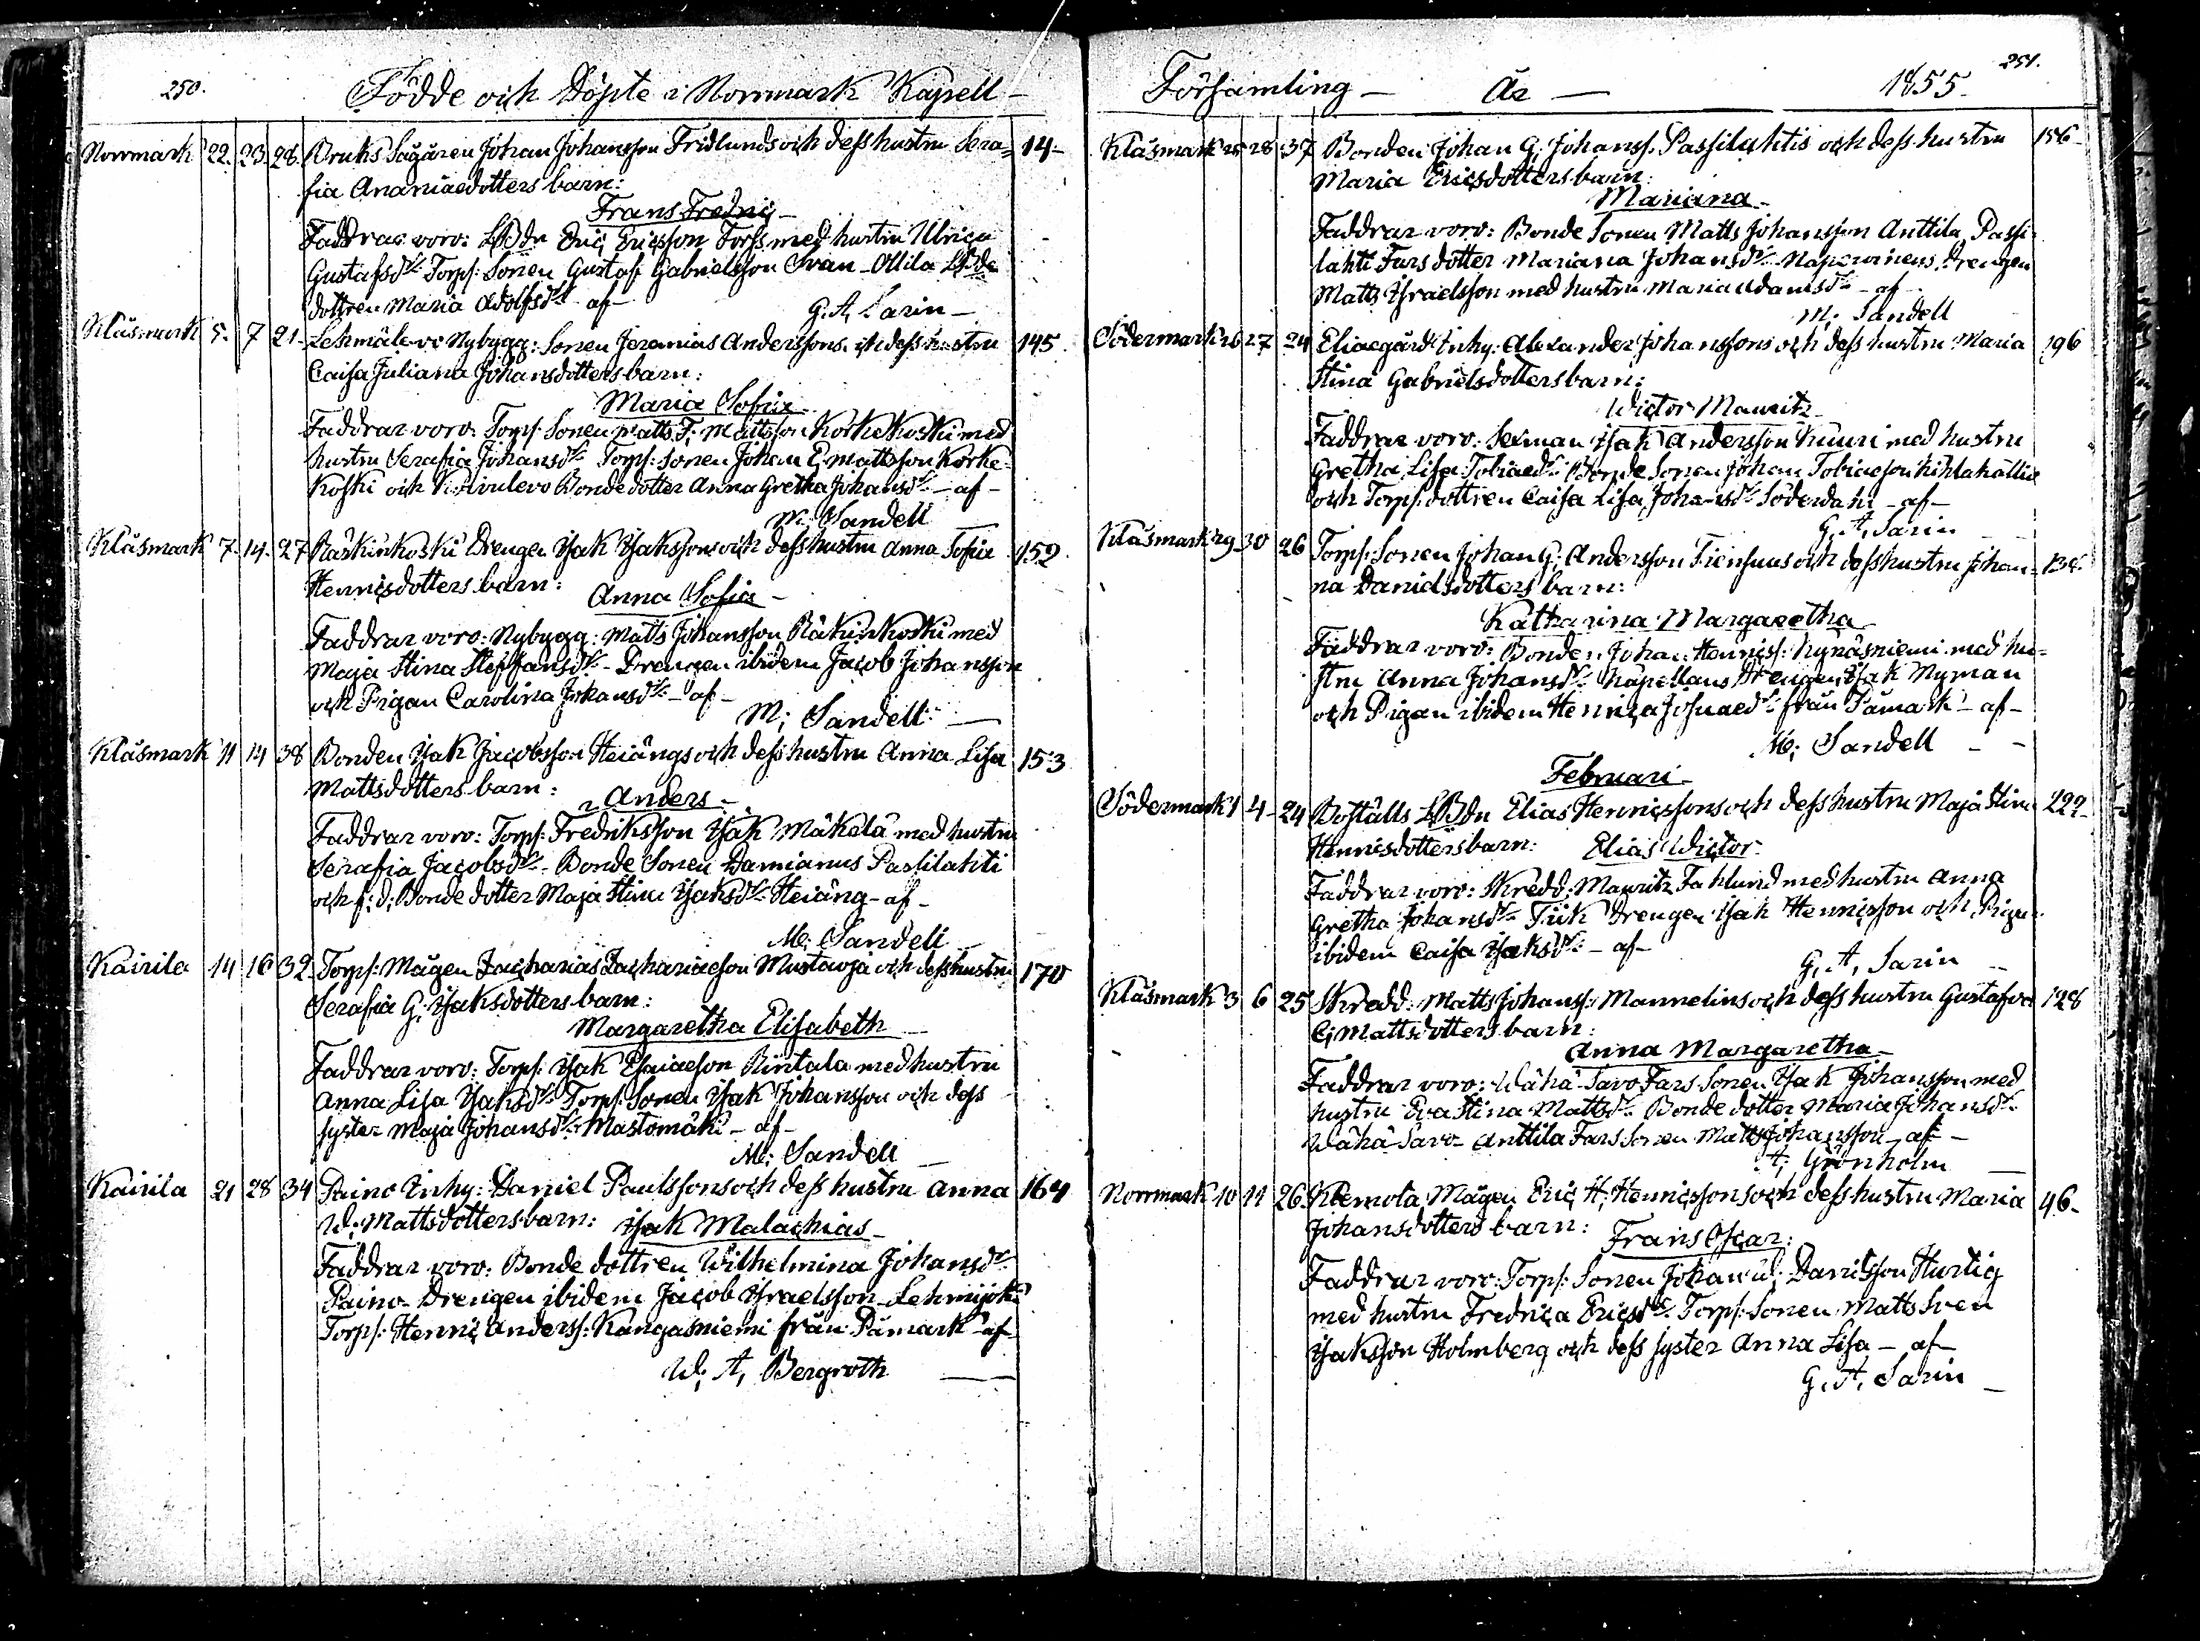 250.
Födde och Döpte i Norrmark Kapell
Norrmark 22. 23. 28. Bruks Sågaren Johan Johansson Fridlunds och dess hustru Sera= 14.
fia Ananiaedotters barn:
Frans Fredric
Faddrar voro: LBdn Eric Ericsson Torss med hustru Ulrica
Gustafsdr Torps: Sonen Gustaf Gabrielsson Svan Ollila LBde
dottren Maria Adolfsdr af
G. A. Sarin
Klåsmark 5. 7 21. Nybygg: Sonen Jeremias Anderssons och dess hustru 145
Caisa Juliana Johansdotters barn:
Maria Sofia
Faddrar voro: Torps: Sonen Matts F: Mattsson Korkekoski med
hustru Serafia Johansdr Torps: Sonen Johan E: Mattsson Korke-
koski och Bondedotter Anna Gretha Johansdr af
M: Sandell
Klåsmark 7. 14. 27 Räskinkoski Drengen Isak Isakssons och dess hustru Anna Sofia 152
Henricsdotters barn:
Anna Sofia
Faddrar voro: Nybygg: Matts Johansson Räkinkoski med
Maja Stina Steffansdr Drengen ibidem Jacob Johansson
och Pigan Carolina Johansdr af
M; Sandell
Klåsmark 11 14 38 Bonden Isak Jacobsson Heiängs och dess hustru Anna Lisa 153
Mattsdotters barn:
Anders
Faddrar voro: Torps: Fredriksson Isak Mäkelä med hustru
Serafia Jacobsdr Bonde Sonen Damianus Passilahti
och f: d: Bonde dotter Maja Stina Isaksdr Heiäng af
M: Sandell
Kairila 14 16 32 Torps: Mågen Zacharias Zachariaeson Mustaoja och dess hustru 170
Serafia G: Isaksdotters barn:
Margaretha Elisabeth
Faddrar voro: Torps: Isak Esaiaeson Rintala med hustru
Anna Lisa Isaksdr Torps: Sonen Isak Johansson och dess
syster Maja Johansdr Mastomäki af
M: Sandell
Kairila 21 28 34 Paino Inhy: Daniel Paulssons och dess hustru Anna 164
W: Mattsdotters barn: Isak Malachias
Faddrar voro: Bonde dottren Wilhelmina Johansdr
Paino Drengen ibidem Jacob Israelsson Lehmijoki
Torps: Henric Anderss: Kangasniemi från Påmark af
W; A, Bergroth
Församling År 1855. 251.
Klåsmark 25 28 37 Bonden Johan G, Johanss: Passilahtis och dess hustru 156
Maria Ericsdotters barn:
Mariana
Faddrar voro: Bonde Sonen Matts Johansson Anttila, Passi-
lahti Fars dotter Mariana Johansdr Drengen
Matts Israelsson med hustru Maria Adamsdr af
M; Sandell
Södermark 26 27 24 Eliaegård Inhy: Alexander Johanssons och dess hustru Maria 196
Stina Gabrielsdotters barn:
Wictor Mauritz
Faddrar voro: Sexman Isak Andersson Knuuri med hustru
Gretha Lisa Tobiaedr Bonde Sonen Johan Tobiaeson
och Torps: dottren Caisa Lisa Johansdr Söderdahl af
G. A, Sarin
Klåsmark 29 30 26 Torps: Sonen Johan G: Andersson Fiensuus och dess hustru Johan=
na Danielsdotters barn:
Katharina Margaretha
Faddrar voro: Bonden Johan Henricss: Kynäsniemi med hu=
stru Anna Johansdr Kapellans Drengen Isak Nyman
och Pigan ibidem Henrica Josuaedr från Påmark af
M: Sandell
Februari
Södermark 1 4 24 Boställs LBdn Elias Henricssons och dess hustru Maja Stina 222
Henricsdotters barn: Elias Wictor
Faddrar voro: Skredd: Mauritz Fahlund med hustru Anna
Gretha Johansdr Tiik Drengen Isak Henricsson och Pigan
ibidem Caisa Isaksdr af
G. A, Sarin
Klåsmark 3 6 25 Skredd: Matts Johanss: Mannelins och dess hustru Gustafva 128
C; Mattsdotters barn:
Anna Margaretha
Faddrar voro: Wähä-Savo Fars Sonen Isak Johansson med
hustru Eva Stina Mattsdr Bonde dotter Maria Johansdr
Wähä Savo Anttila Fars Sonen Matts Johansson af
A; Grönholm
Norrmark 10 11 26 Klemola Mågen Eric H: Henricssons och dess hustru Maria 46
Johansdotters barn: Frans Oscar:
Faddrar voro: Torps: Sonen Johan W: Davidsson Hurtig
med hustru Fredrica Ericsdr Torps: Sonen Matts Sven
Isaksson Holmberg och dess syster Anna Lisa af
G. A, Sarin